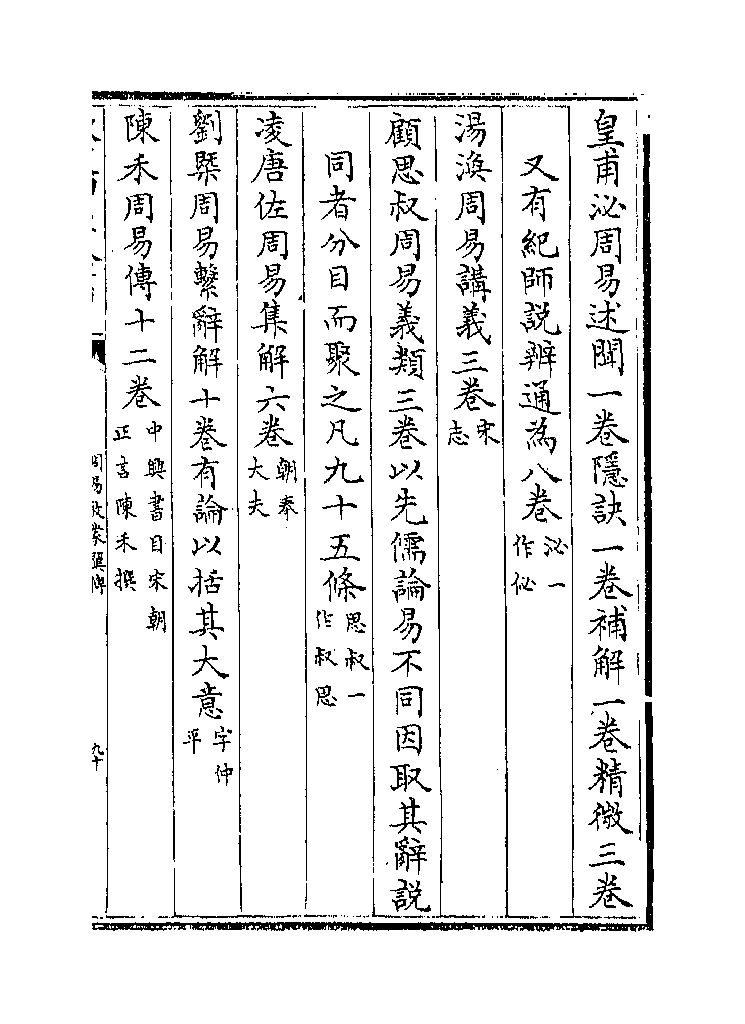 皇甫泌周易述聞一卷隱訣一卷補解一卷精微三卷
又有紀師說辨通為八卷泌一作佖
湯渙周易講義三卷宋志
顧思叔周易義類三卷以先儒論易不同因取其辭說
同者分目而聚之凡九十五條思叔一作叔思
凌唐佐周易集解六卷朝奉大夫
劉槩周易繫辭解十卷有論以括其大意字仲平
陳禾周易傳十二卷中興書目宋朝正言陳禾撰
周易啟蒙翼傳
九十